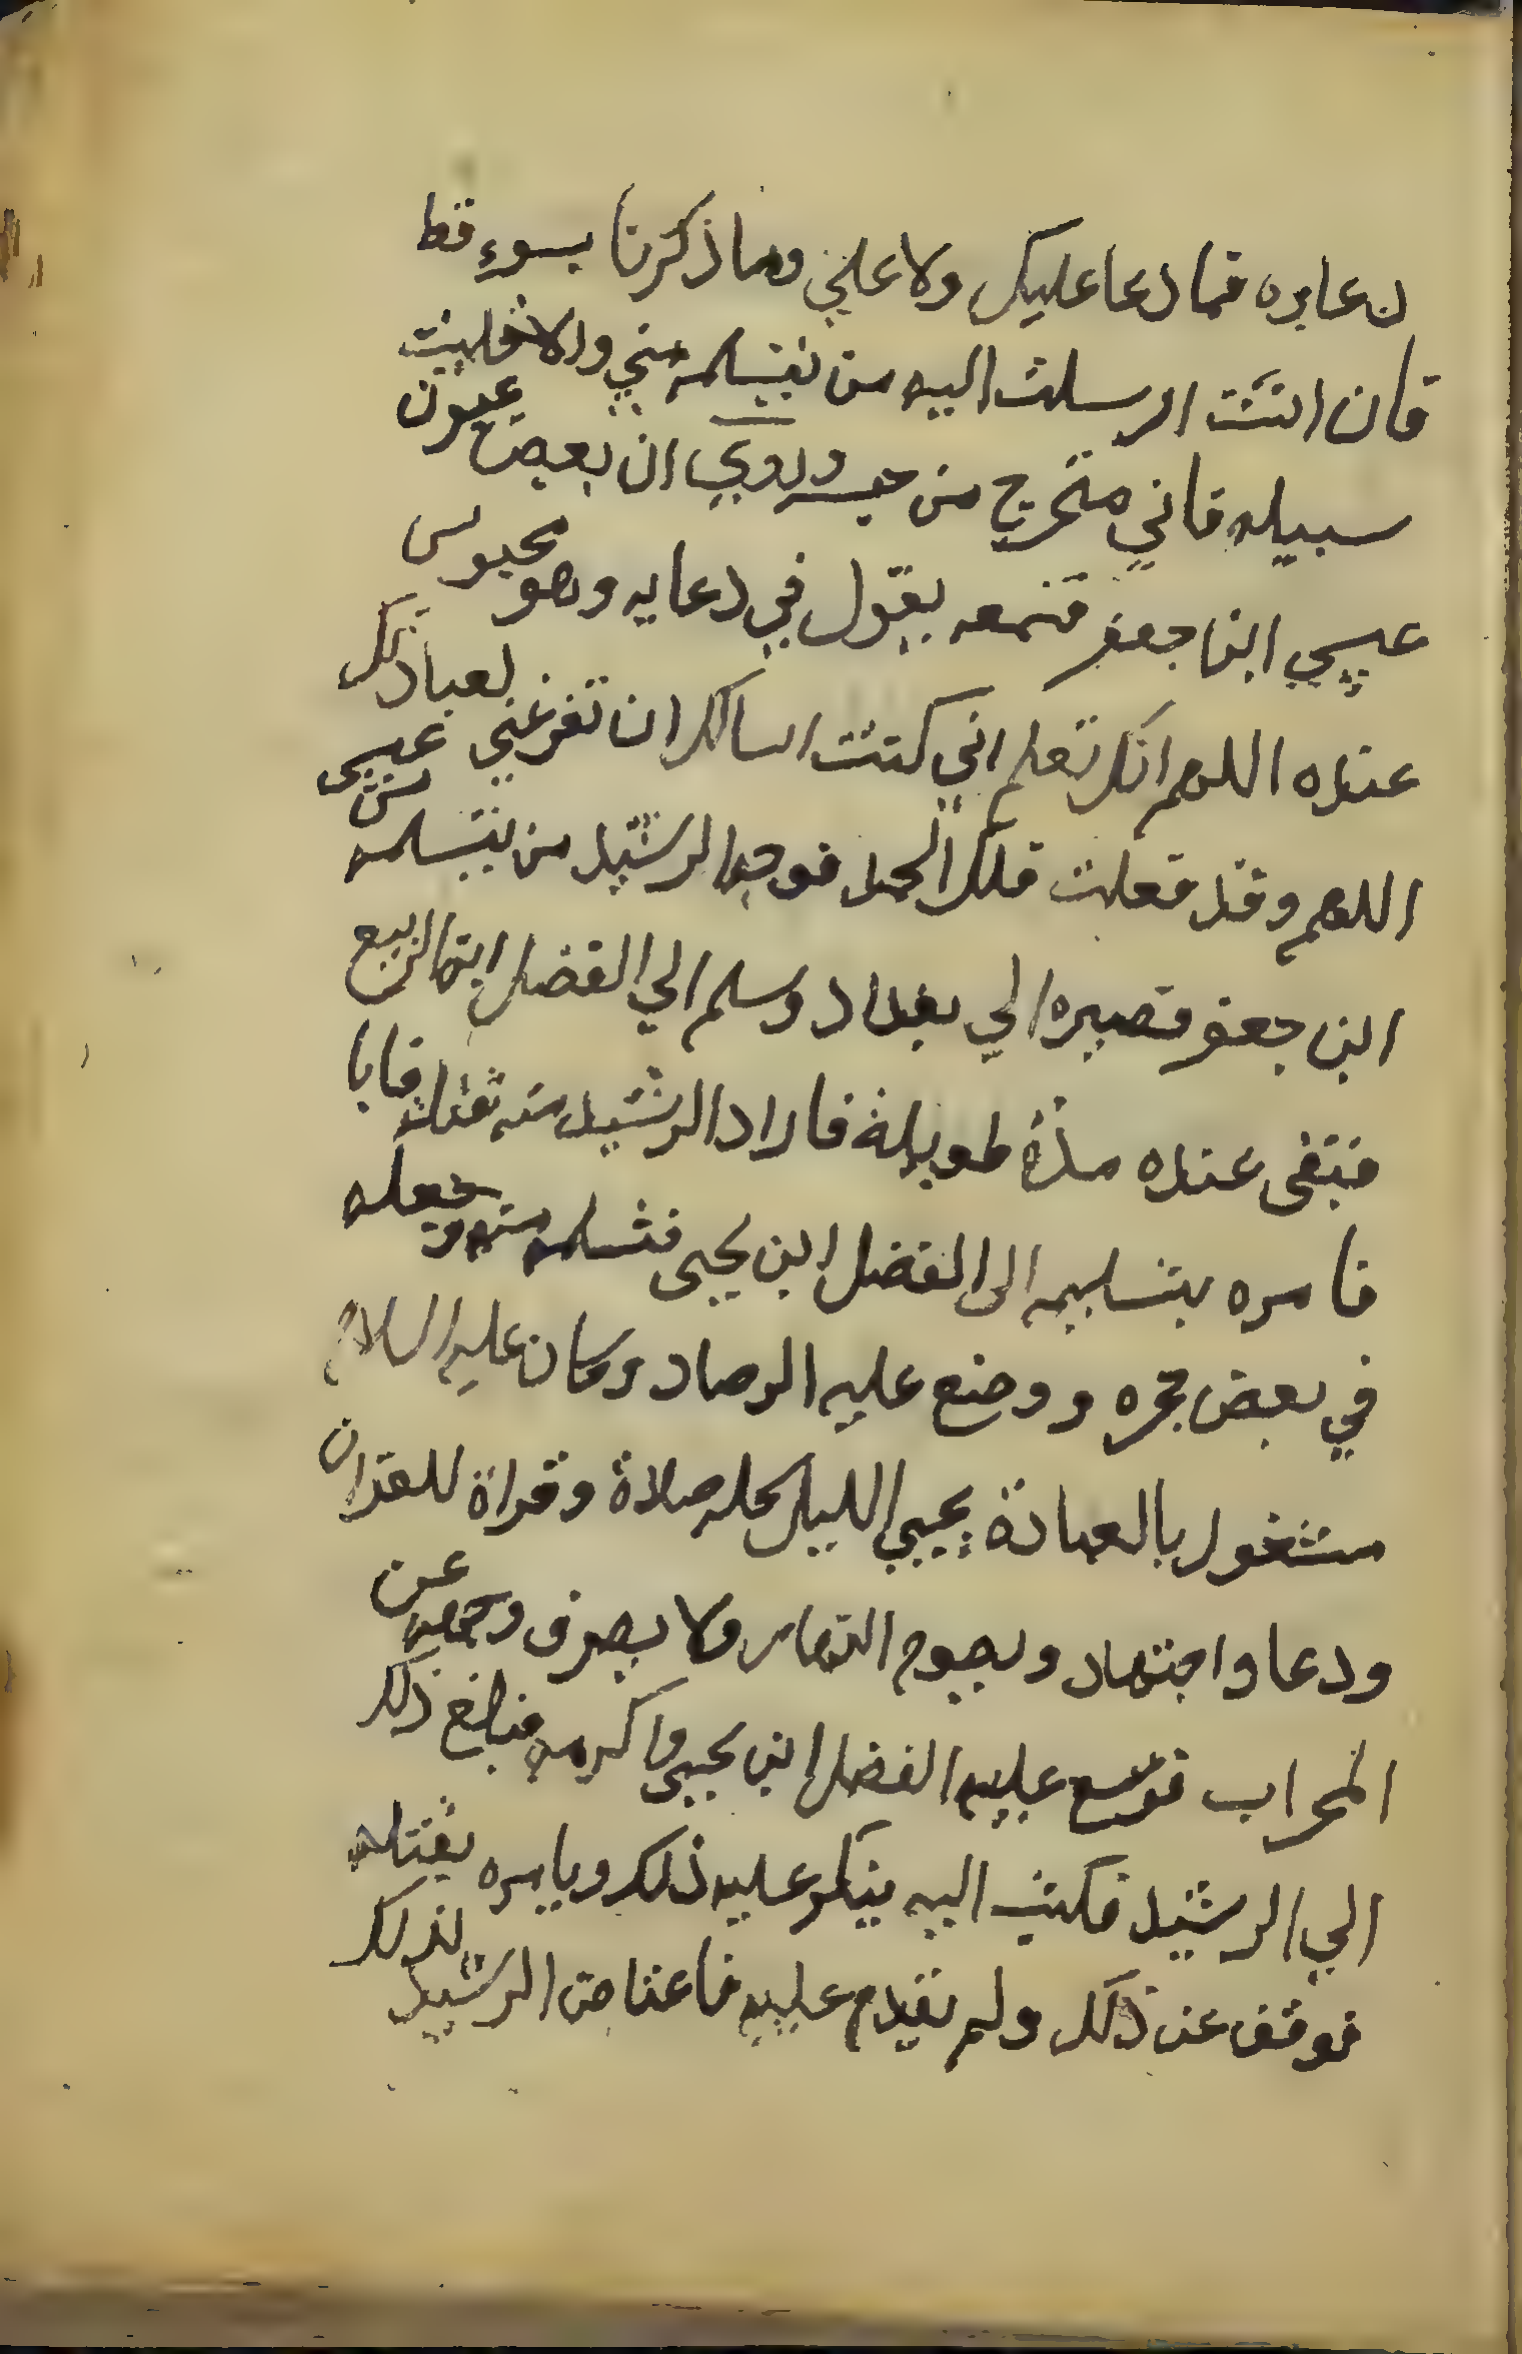 دعايه فما دعا عليك ولا علي وما ذكرنا بسوء قط
فان انت ارسلت اليه من يتسلمه مني والا خليت
سبيله فاني متحرج من حبسه وروي ان بعض عيون
عيسي ابن جعفر سمعه يقول في دعايه وهو محبوس
عنده اللهم انك تعلم اني كنت اسالك ان تفرغني لعبادتك
اللهم وقد فعلت فلك الحمد فوجه الرشيد من يتسلمه من عيسى
ابن جعفر فصيره الي بغداد وسلم الي الفضل ابن الربيع
فبقى عنده مدة طويلة فاراد الرشيد منه قتله فابا
فامره بتسليمه الى الفضل ابن يحيى فتسلمه منه وجعله
في بعض حجره ووضع عليه الرصاد وكان عليه السلام
مشغول بالعبادة يحيي الليل كله صلاة وقراة للقران
ودعا واجتهاد ويصوم النهار ولا يصرف وجهه عن
المحراب فوسع عليه الفضل ابن يحيى واكرمه فبلغ ذلك
الي الرشيد فكتب اليه ينكر عليه ذلك ويامره بقتله
فوقف عن ذلك ولم يقدم عليه فاغتاض الرشيد لذلك